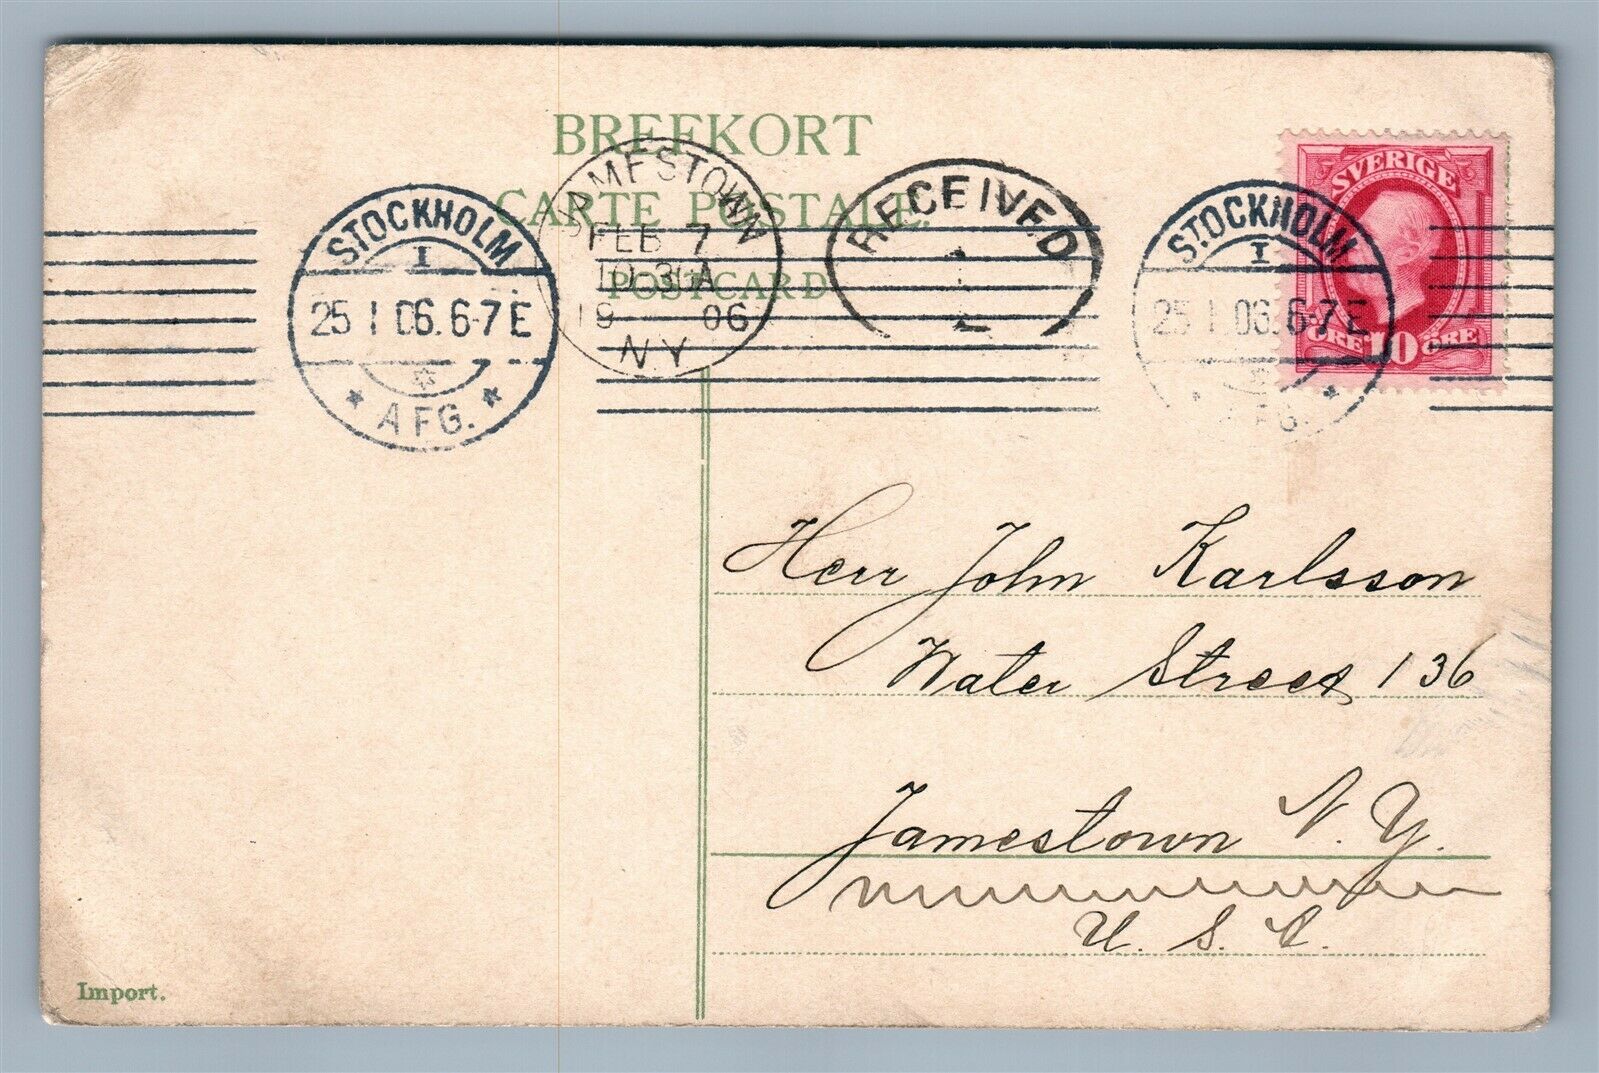 BREFKORT
CARTE POSTALE.
POSTCARD
STOCKHOLM
I
25 1 06. 6-7 E
AFG.
JAMESTOWN
FEB 7
10-30A
19 06
N.Y.
RECEIVED
STOCKHOLM
I
25 1 06. 6-7 E
AFG.
SVERIGE
ÖRE 10 ÖRE
Herr John Karlsson
Water Street 136
Jamestown N. Y.
U. S. A.
Import.